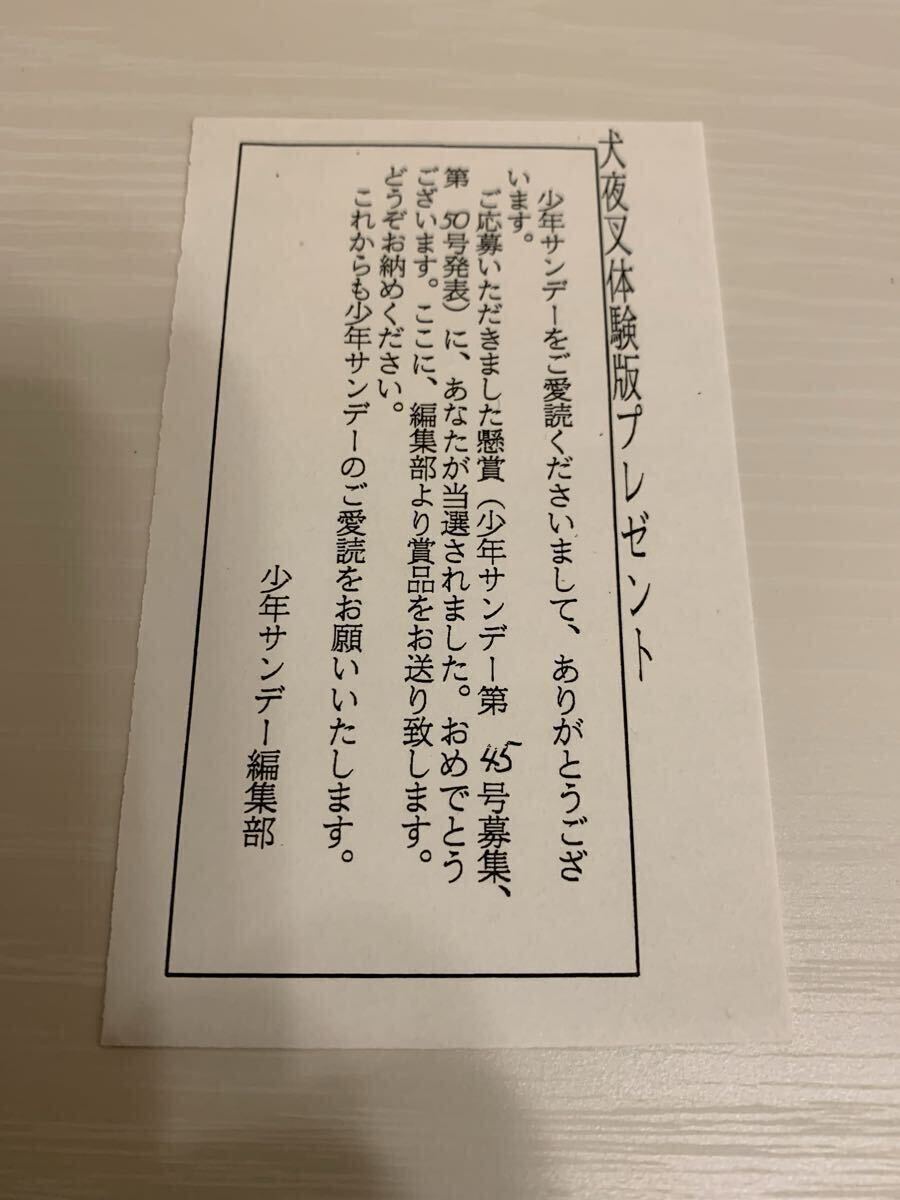 犬夜叉体験版プレゼント
少年サンデーをご愛読くださいまして、ありがとうござ
います。
ご応募いただきました懸賞（少年サンデー第 45号募集、
第 50号発表）に、あなたが当選されました。おめでとう
ございます。ここに、編集部より賞品をお送り致します。
どうぞお納めください。
これからも少年サンデーのご愛読をお願いいたします。
少年サンデー編集部